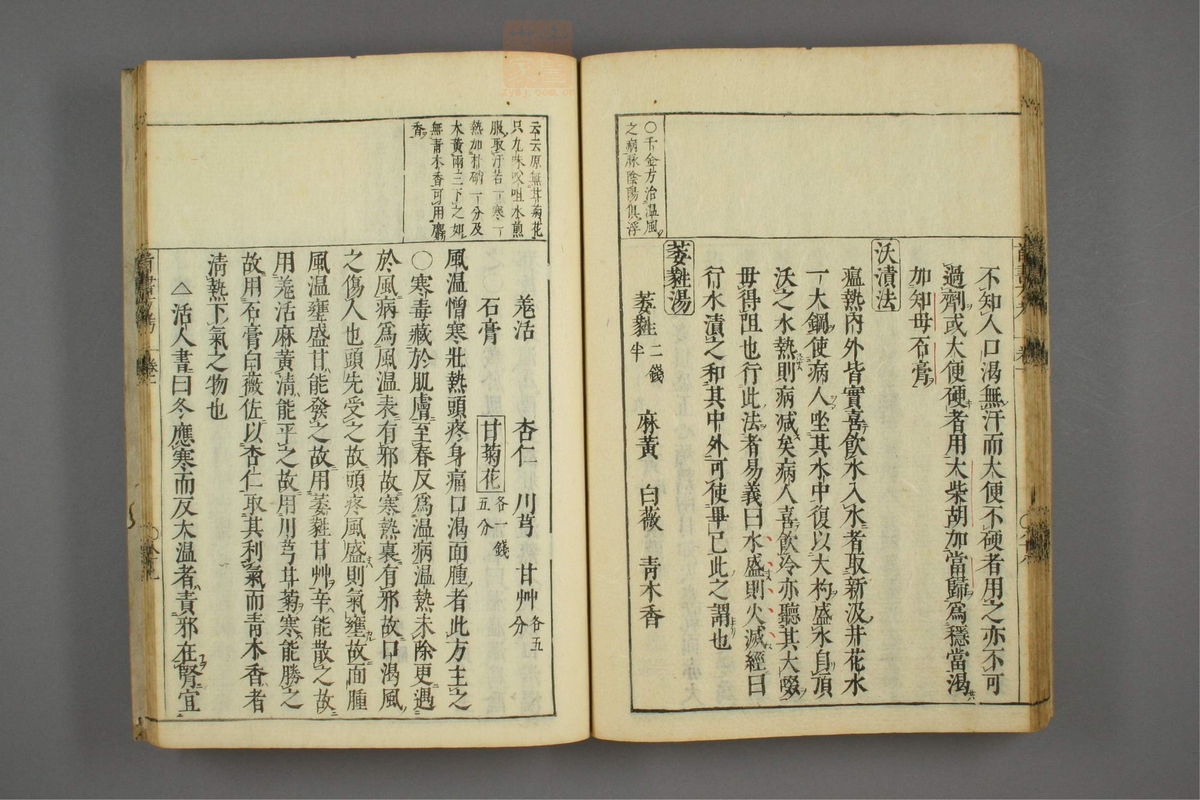 〇千金方治温風
之病脉陰陽俱浮
不知人口渴無汗而大便不硬者用之亦不可
過劑或大便硬者用大柴胡加當歸爲穩當渴
加知母石膏
沃漬法
瘟熱内外皆實喜飲水入水者取新汲井花水
一大鍋使病人坐其水中復以大杓盛水自頂
沃之水熱則病減矣病人喜飲冷亦聽其大啜
毋得阻也行此法者易義曰水盛則火滅經曰
行水漬之和其中外可使畢已此之謂也
萎蕤湯
萎蕤二錢半 麻黄 白薇 青木香
云云原無甘菊花
只九味㕮咀水煎
服取汗若一寒一
熱加朴硝一分及
大黄兩三下之如
無青木香可用麝
香
羌活 杏仁 川芎 甘艸各五分
石膏 甘菊花各一錢五分
風温憎寒壯熱頭疼身痛口渴面腫者此方主之
〇寒毒藏於肌膚至春反爲温病温熱未除更遇
於風病爲風温表有邪故寒熱裏有邪故口渴風
之傷人也頭先受之故頭疼風盛則氣壅故面腫
風温壅盛甘能發之故用萎蕤甘艸辛能散之故
用羌活麻黄清能平之故用川芎甘菊寒能勝之
故用石膏白薇佐以杏仁取其利氣而青木香者
清熱下氣之物也
△活人書曰冬應寒而反大温者責邪在腎宜